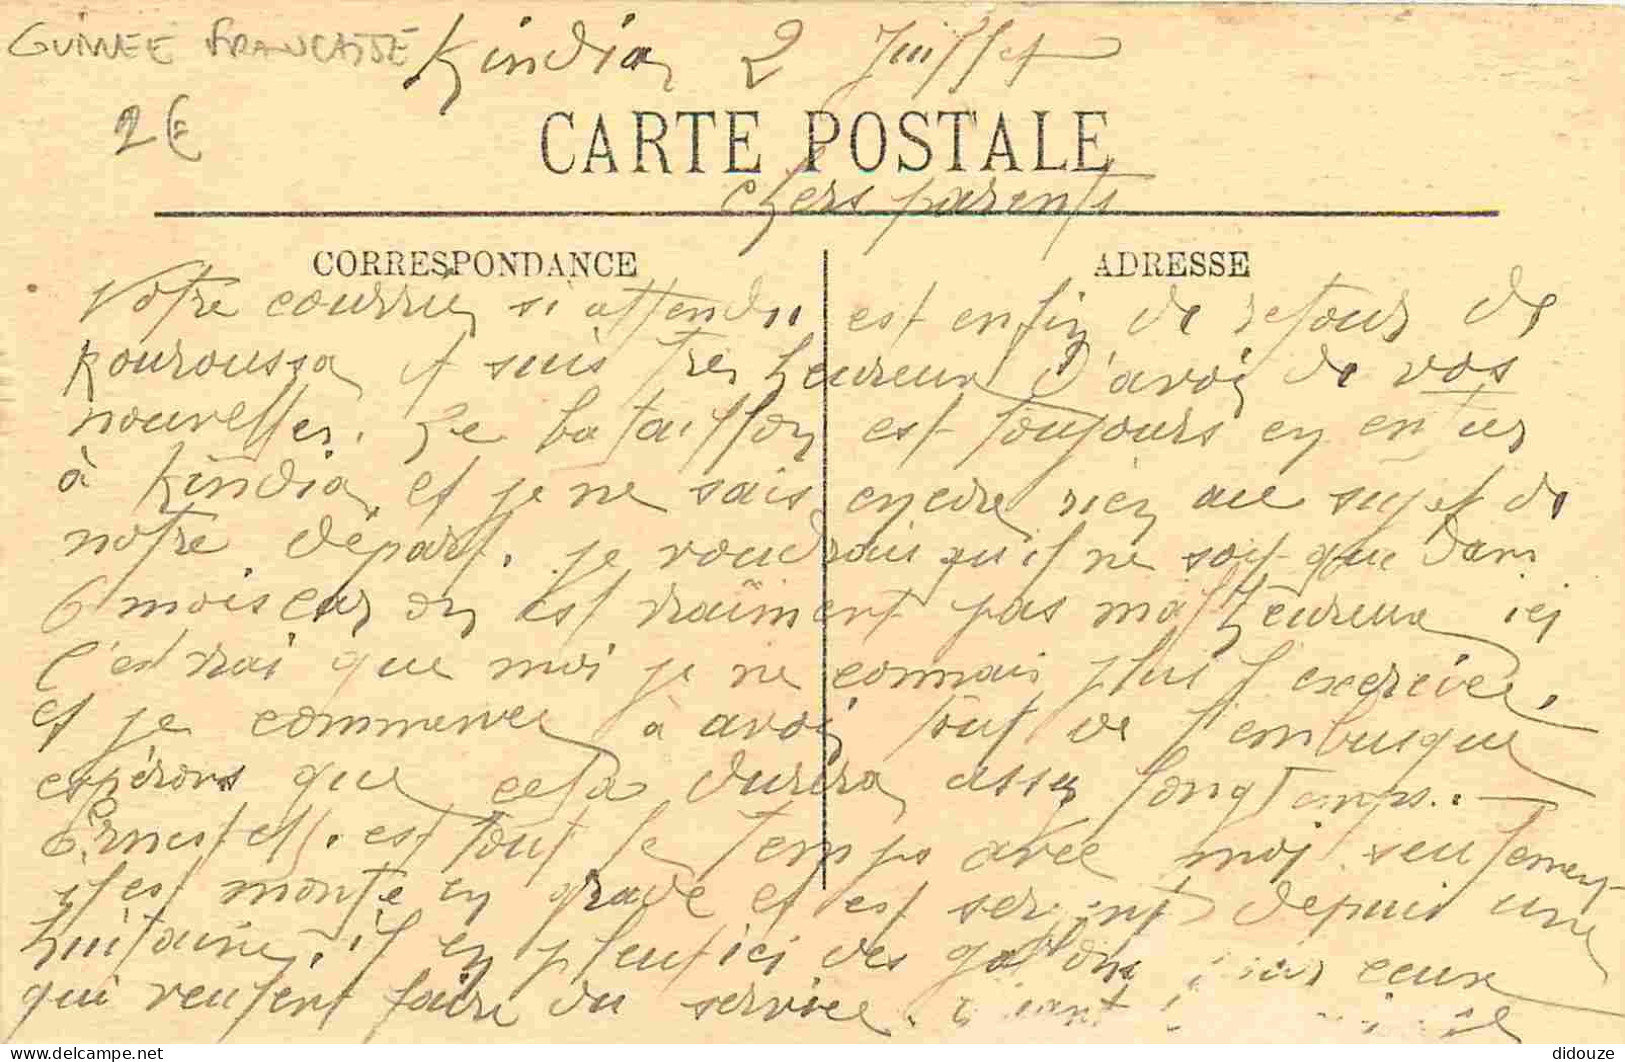 GUINEE FRANCAISE
Kindia 2 Juillet
2€
CARTE POSTALE
chers parents
CORRESPONDANCE
ADRESSE
Votre courrier si attendu est enfin de retour de
Kouroussa et suis très heureux d'avoir de vos
nouvelles. Le bataillon est toujours en entier
à Kindia et je ne sais encore rien au sujet de
notre départ. je voudrais qu'il ne soit que dans
6 mois car on est vraiment pas malheureux ici
C'est vrai que moi je ne connais plus l'exercice,
et je commence à avoir tout de l'embusqué
espérons que cela durera assez longtemps..
Ernest est tout le temps avec moi seulement
il est monté en grade et est sergent depuis une
huitaine, il en pleut ici des galons pour ceux
qui veulent faire du service.
didouze